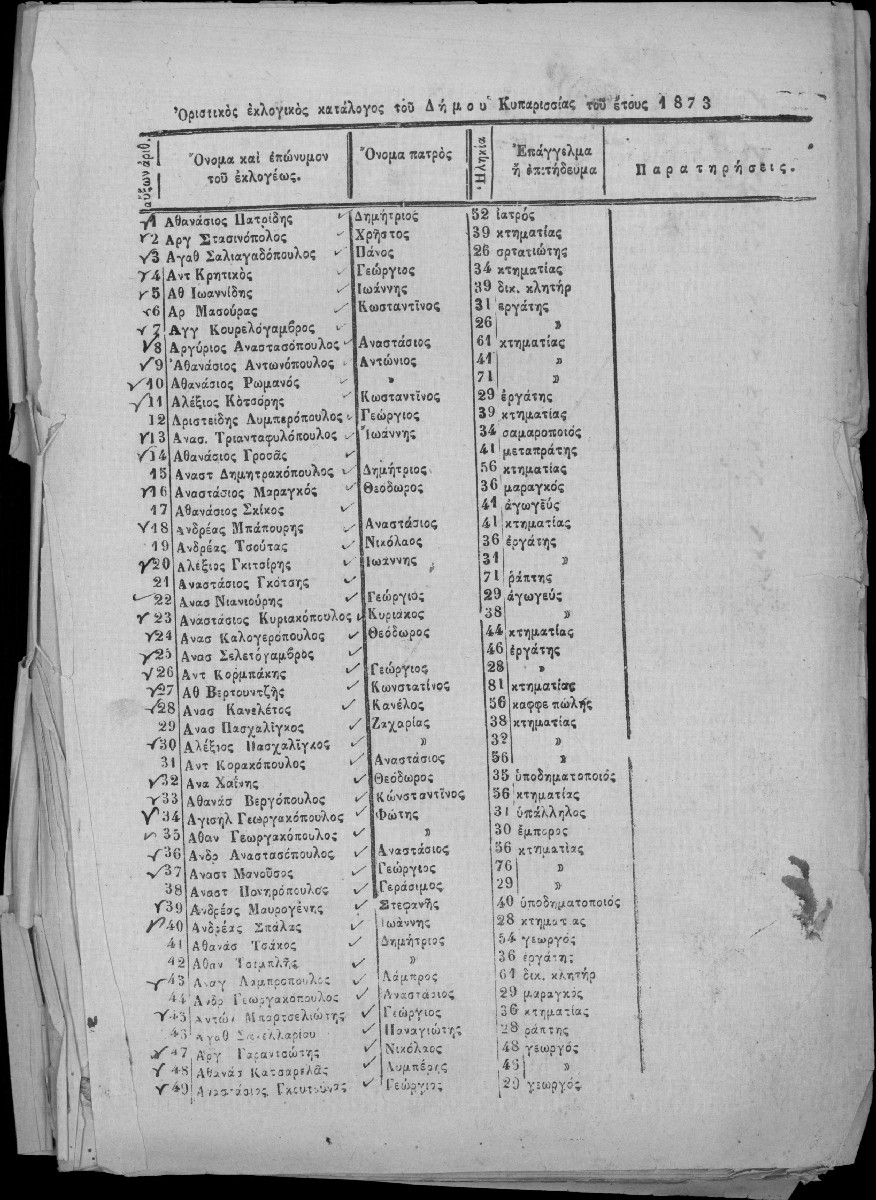 Ὁριστικὸς ἐκλογικὸς κατάλογος τοῦ Δήμου Κυπαρισσίας τοῦ ἔτους 1873
αὔξων ἀριθ. Ὄνομα καὶ ἐπώνυμον τοῦ ἐκλογέως. Ὄνομα πατρὸς Ἡληκία Ἐπάγγελμα ἢ ἐπιτήδευμα Παρατηρήσεις.
1 Αθανάσιος Πατρίδης Δημήτριος 52 ἰατρός
2 Αργ Στασινόπολος Χρῆστος 39 κτηματίας
3 Αγαθ Σαλιαγαδόπουλος Πάνος 26 σρτατιώτης
4 Αντ Κρητικὸς Γεώργιος 34 κτηματίας
5 Αθ Ιωαννίδης Ἰωάννης 39 δικ. κλητήρ
6 Αρ Μασούρας Κωσταντῖνος 31 ἐργάτης
7 Αγγ Κουρελόγαμβρος 26 »
8 Αργύριος Αναστασόπουλος Αναστάσιος 61 κτηματίας
9 Ἀθανάσιος Αντωνόπουλος Αντώνιος 41 »
10 Αθανάσιος Ρωμανός » 71 »
11 Αλέξιος Κότσορης Κωσταντῖνος 29 ἐργάτης
12 Αριστείδης Λυμπερόπουλος Γεώργιος 39 κτηματίας
13 Ανασ. Τριανταφυλόπουλος Ἰωάννης 34 σαμαροποιός
14 Αθανάσιος Γροσᾶς 41 μεταπράτης
15 Αναστ Δημητρακόπουλος Δημήτριος 56 κτηματίας
16 Αναστάσιος Μαραγκός Θεόδωρος 36 μαραγκός
17 Αθανάσιος Σκίκος 41 ἀγωγεύς
18 Ανδρέας Μπάπουρης Αναστάσιος 41 κτηματίας
19 Ανδρέας Τσούτας Νικόλαος 36 ἐργάτης
20 Αλέξιος Γκιτσίρης Ἰωάννης 31 »
21 Αναστάσιος Γκότσης 71 ῥάπτης
22 Ανασ Νιανιούρης Γεώργιος 29 ἀγωγεύς
23 Αναστάσιος Κυριακόπουλος Κυριάκος 38 »
24 Ανασ Καλογερόπουλος Θεόδωρος 44 κτηματίας
25 Ανασ Σελετόγαμβρος 46 ἐργάτης
26 Αντ Κορμπάκης Γεώργιος 28 »
27 Αθ Βερτουντζῆς Κωνστατῖνος 81 κτηματίας
28 Ανασ Κανελέτος Κανέλος 56 καφφεπώλης
29 Ανασ Πασχαλῖγκος Ζαχαρίας 38 κτηματίας
30 Αλέξιος Πασχαλῖγκος » 32 »
31 Αντ Κορακόπουλος Αναστάσιος 56 »
32 Ανα Χαΐνης Θεόδωρος 35 ὑποδηματοποιός
33 Αθανάσ Βεργόπουλος Κώνσταντῖνος 56 κτηματίας
34 Αγισηλ Γεωργακόπουλος Φώτης 31 ὑπάλληλος
35 Αθαν Γεωργακόπουλος » 30 ἔμπορος
36 Ανδρ Αναστασόπουλος Αναστάσιος 56 κτηματίας
37 Αναστ Μανοῦσος Γεώργιος 76 »
38 Αναστ Πονηρόπουλος Γεράσιμος 29 »
39 Ανδρέας Μαυρογένης Στεφανῆς 40 ὑποδηματοποιός
40 Ανδρέας Σπάλας Ιωάννης 28 κτηματίας
41 Αθανάσ Τσάκος Δημήτριος 54 γεωργός
42 Αθαν Τσιμπλῆς » 36 ἐργάτης
43 Αναγ Λαμπρόπουλος Λάμπρος 61 δικ. κλητήρ
44 Ανδρ Γεωργακόπουλος Αναστάσιος 29 μαραγκός
45 Αντών Μπαρτσελιώτης Γεώργιος 36 κτηματίας
46 Αγαθ Σακελλαρίου Παναγιώτης 28 ράπτης
47 Αργ Γαραντσώτης Νικόλαος 48 γεωργός
48 Αθανάσ Κατσαρελᾶς Λυμπέρης 46 »
49 Αναστάσιος Γκουτούνας Γεώργιος 29 γεωργός